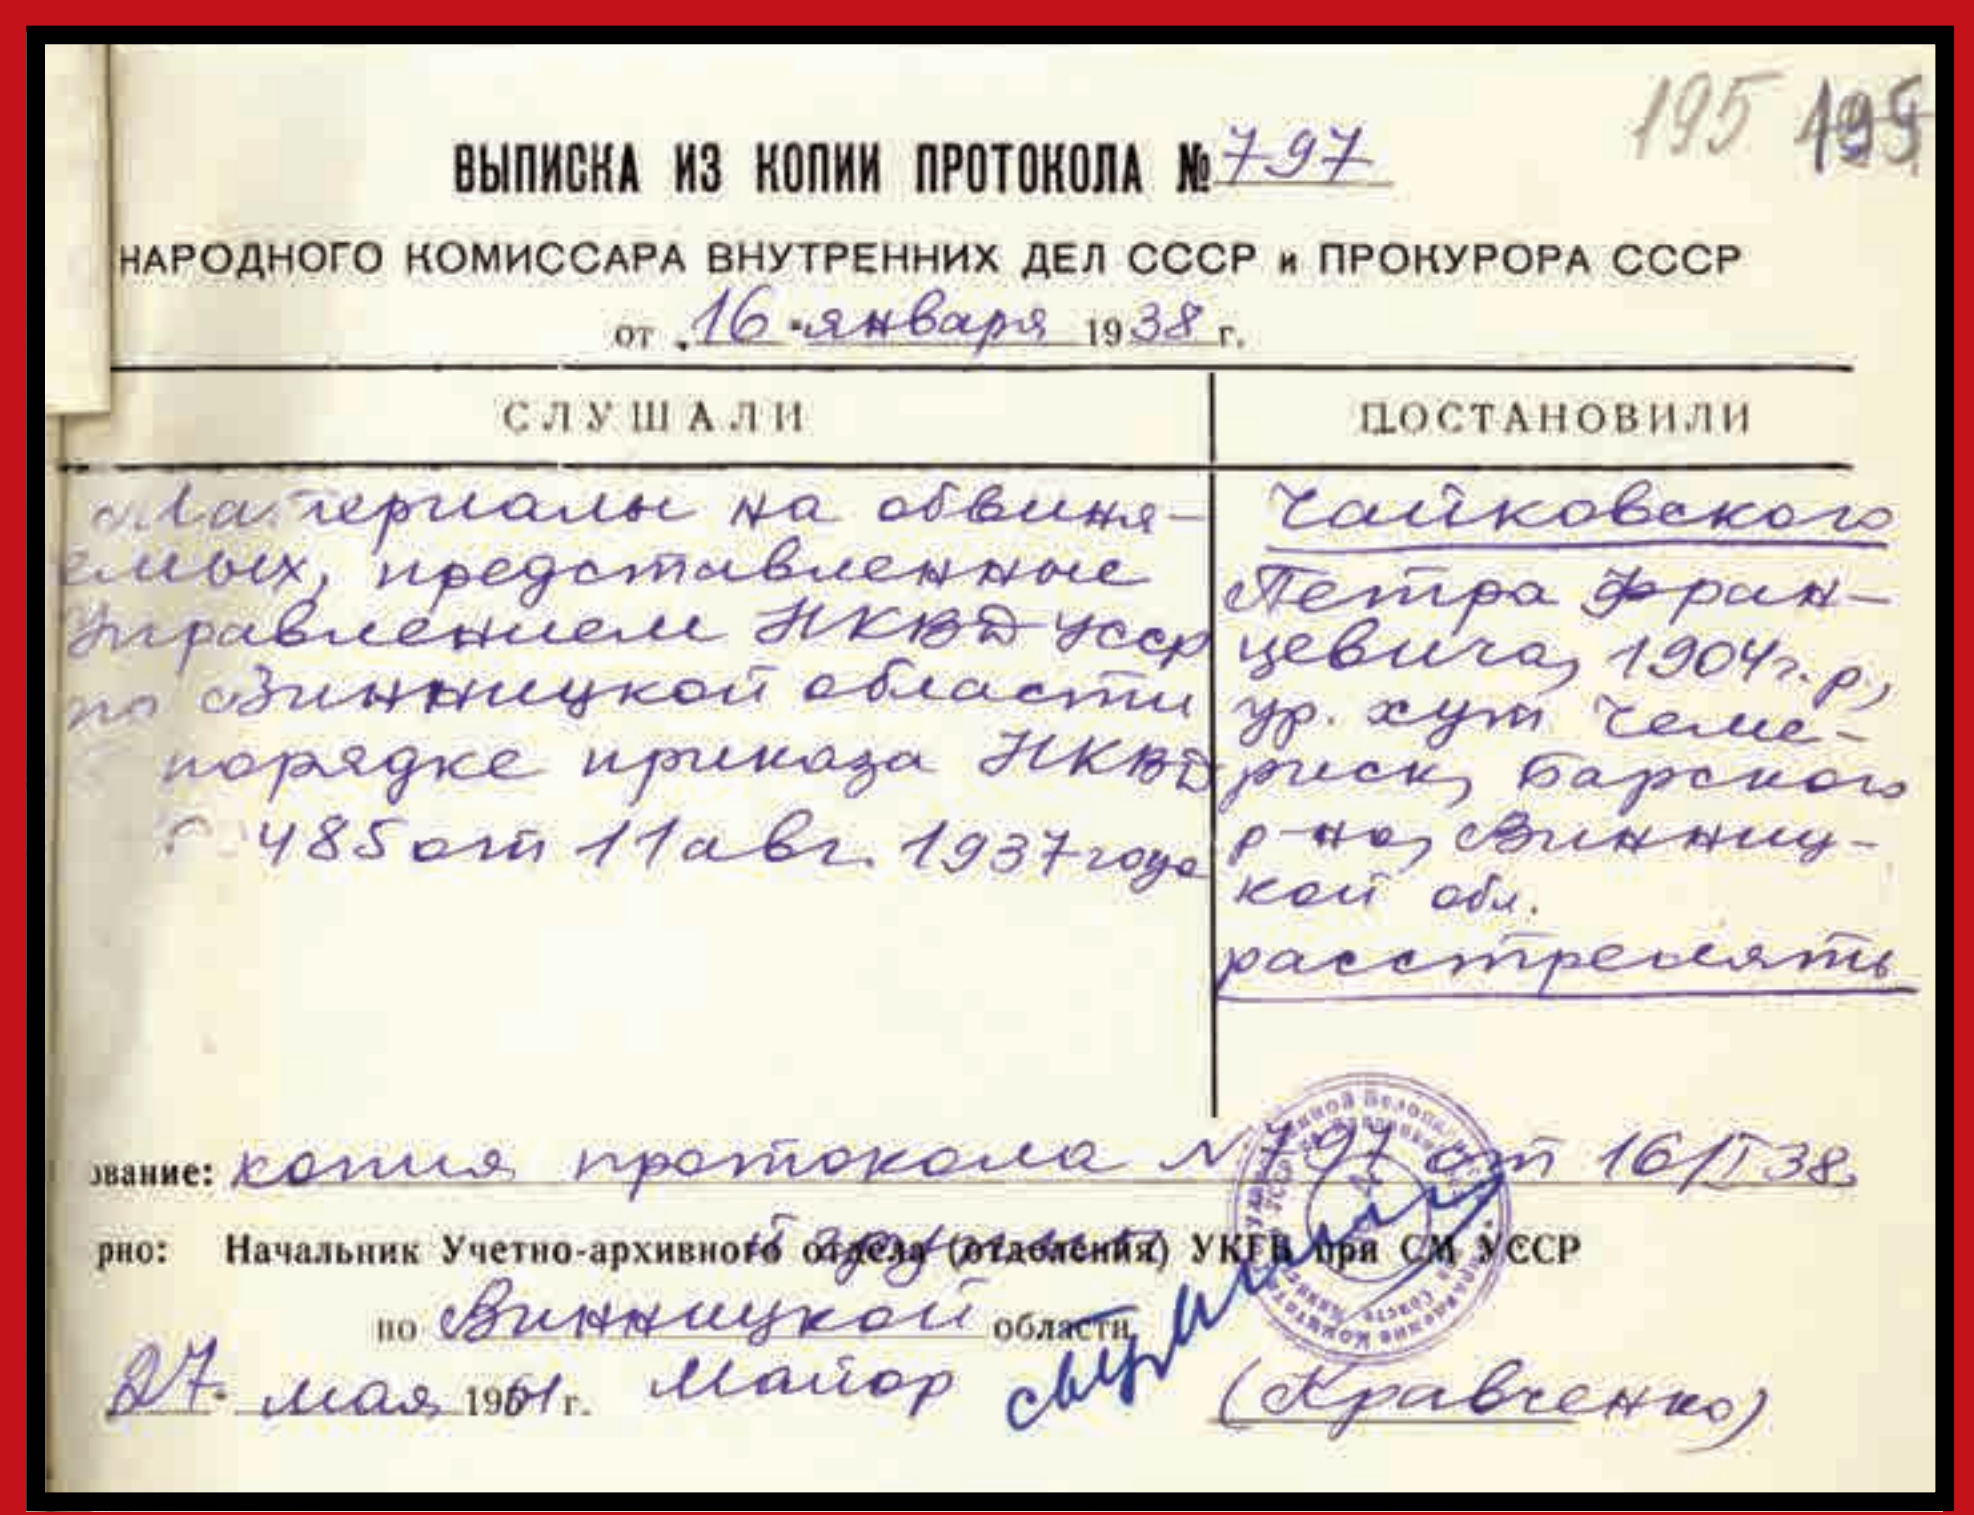 195 195
ВЫПИСКА ИЗ КОПИИ ПРОТОКОЛА № 797
НАРОДНОГО КОМИССАРА ВНУТРЕННИХ ДЕЛ СССР и ПРОКУРОРА СССР
от „16" января 1938 г.
СЛУШАЛИ
ПОСТАНОВИЛИ
Материалы на обвиня-
емых, представленные
Управлением НКВД УССР
по Винницкой области
порядке приказа НКВД
485 от 11 авг. 1937 года
Чайковского
Петра Фран-
цевича, 1904 г.р.,
ур. хут Чеме-
риск, Барского
р-на, Винниц-
кой обл.
расстрелять
ование: копия протокола N 797 от 16/I 38.
рно: Начальник Учетно-архивного отдела (отделения) УКГБ при СМ УССР
по Винницкой области
27 мая 1961 г. Майор (Кравченко)